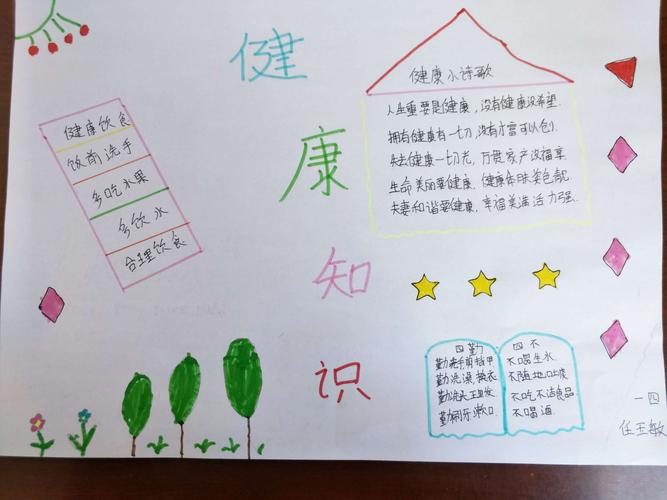 健
康
知
识
健康饮食
饭前洗手
多吃水果
多饮水
合理饮食
健康小诗歌
人生重要是健康，没有健康没希望.
拥有健康有一切，没有才富可以创.
失去健康一切光，万贯家产没福享.
生命美丽要健康，健康体肤
夫妻和谐要健康，幸福美满活力强.
四勤
勤洗手剪指甲
勤洗澡、换衣
勤洗头
勤刷牙、漱口.
四不
不喝生水.
不随地吐痰
不吃不洁食品
不喝酒.
一四
任玉敏